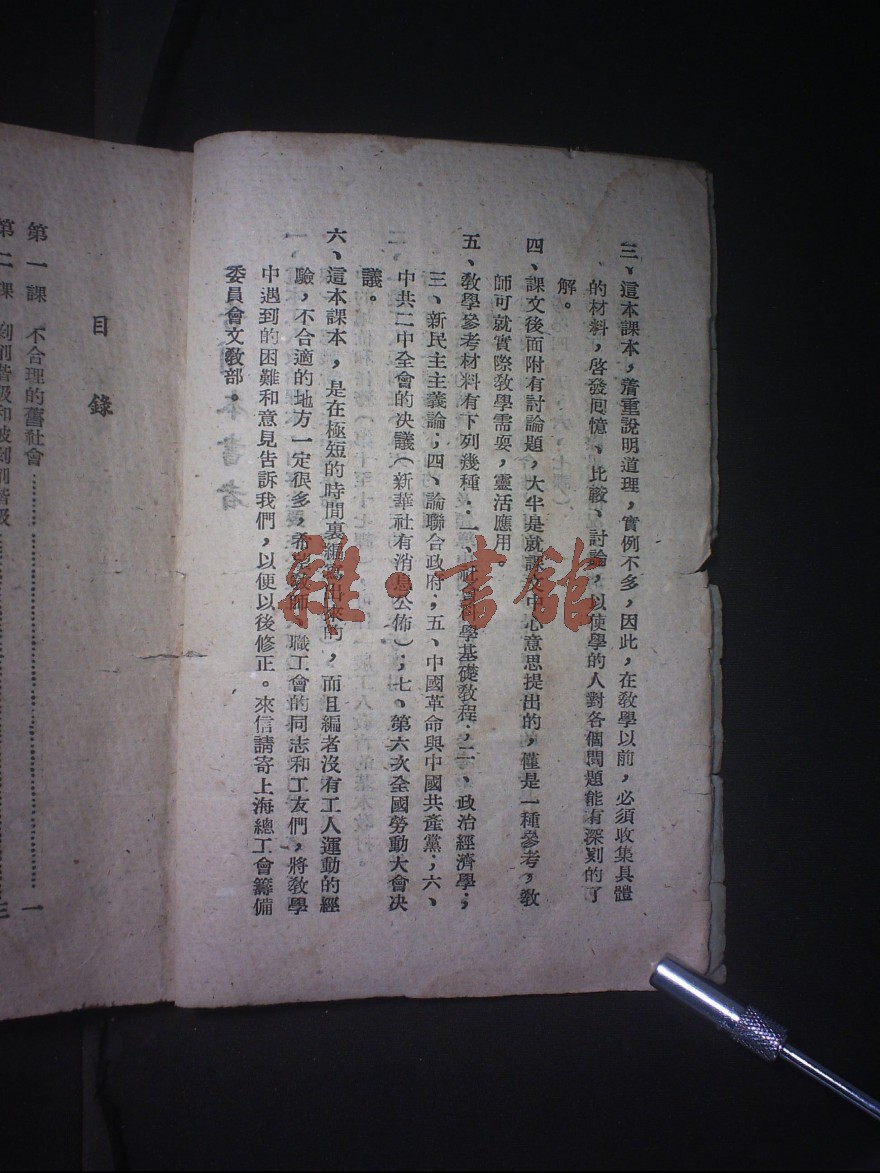 三、這本課本，着重說明道理，實例不多，因此，在教學以前，必須收集具體
的材料，啓發囘憶、比較、討論，以使學的人對各個問題能有深刻的了
解。
四、課文後面附有討論題，大半是就課文中心意思提出的，僅是一種參考，教
師可就實際教學需要，靈活應用
五、教學參考材料有下列幾種：一、社會科學基礎教程；二、政治經濟學；
三、新民主主義論；四、論聯合政府；五、中國革命與中國共產黨；六、
中共二中全會的决議（新華社有消息公佈）；七、第六次全國勞動大會决
議。
六、這本課本，是在極短的時間裏編寫出來的，而且編者沒有工人運動的經
驗，不合適的地方一定很多，希望教師、職工會的同志和工友們，將教學
中遇到的困難和意見告訴我們，以便以後修正。來信請寄上海總工會籌備
委員會文教部。
目錄
第一課 不合理的舊社會…………一
第二課 剝削階級和被剝削階級
雜·書館